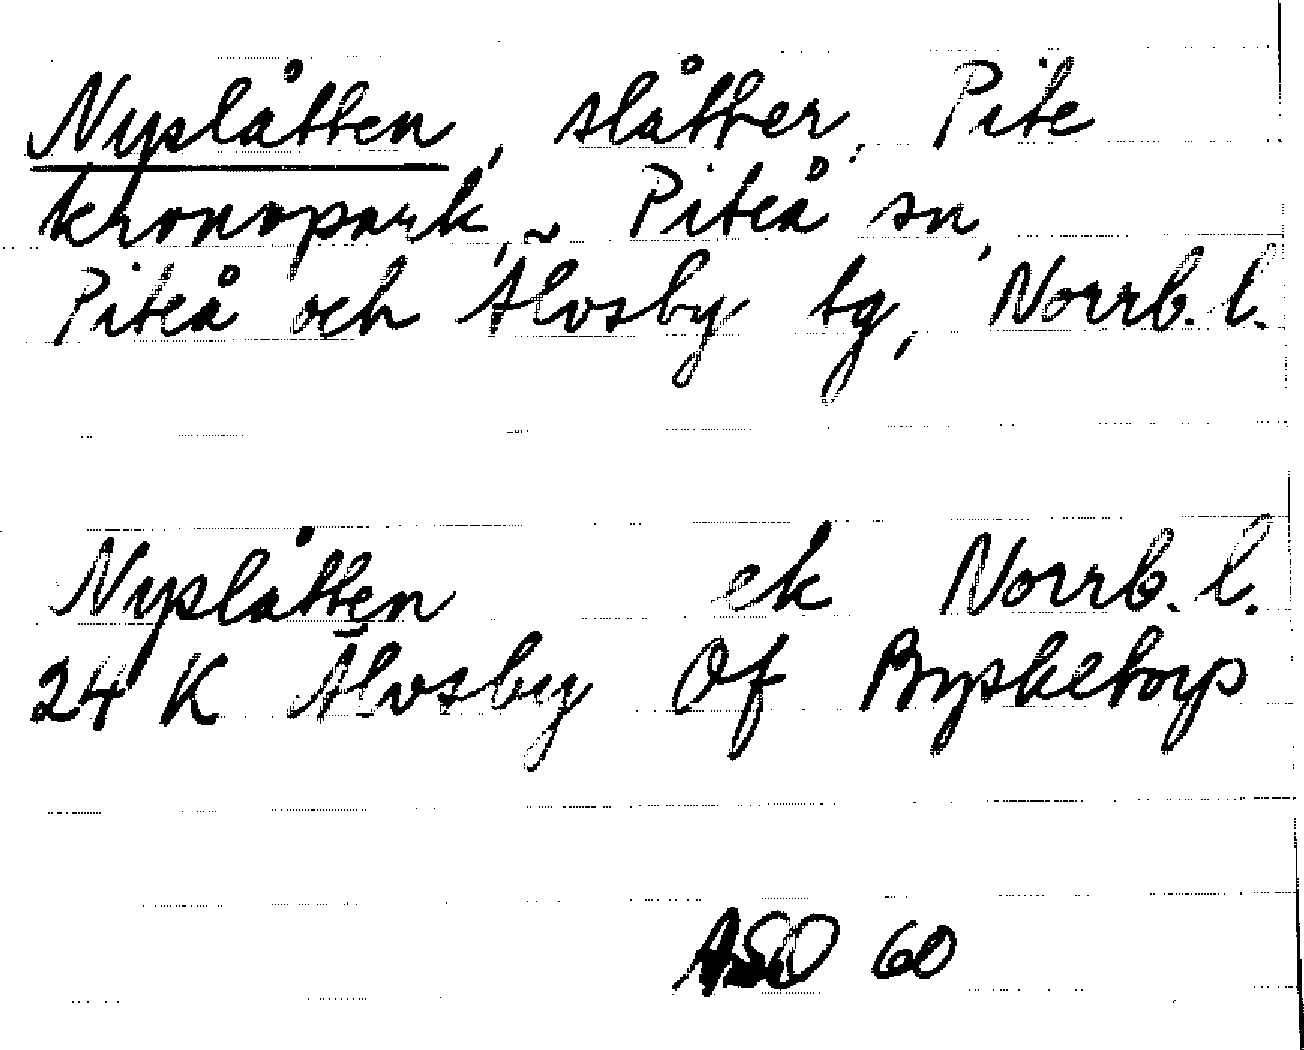 Nyslåtten, slåtter, Pite
kronopark, Piteå sn,
Piteå och Älvsby tg, Norrb. l.
Nyslåtten ek Norrb. l.
24 K Älvsby Of Byskeltorp
ASO 60